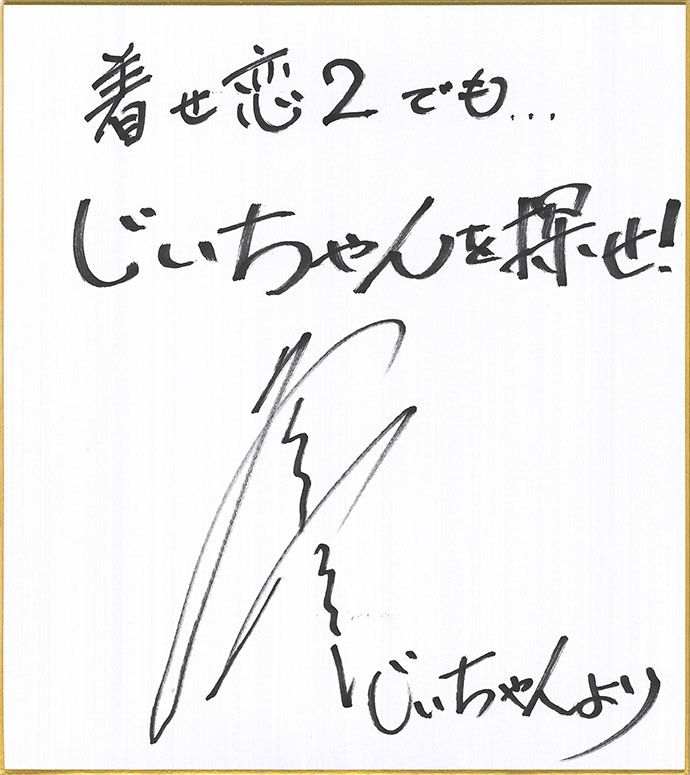 着せ恋2でも...
じいちゃんを探せ!
じぃちゃんより